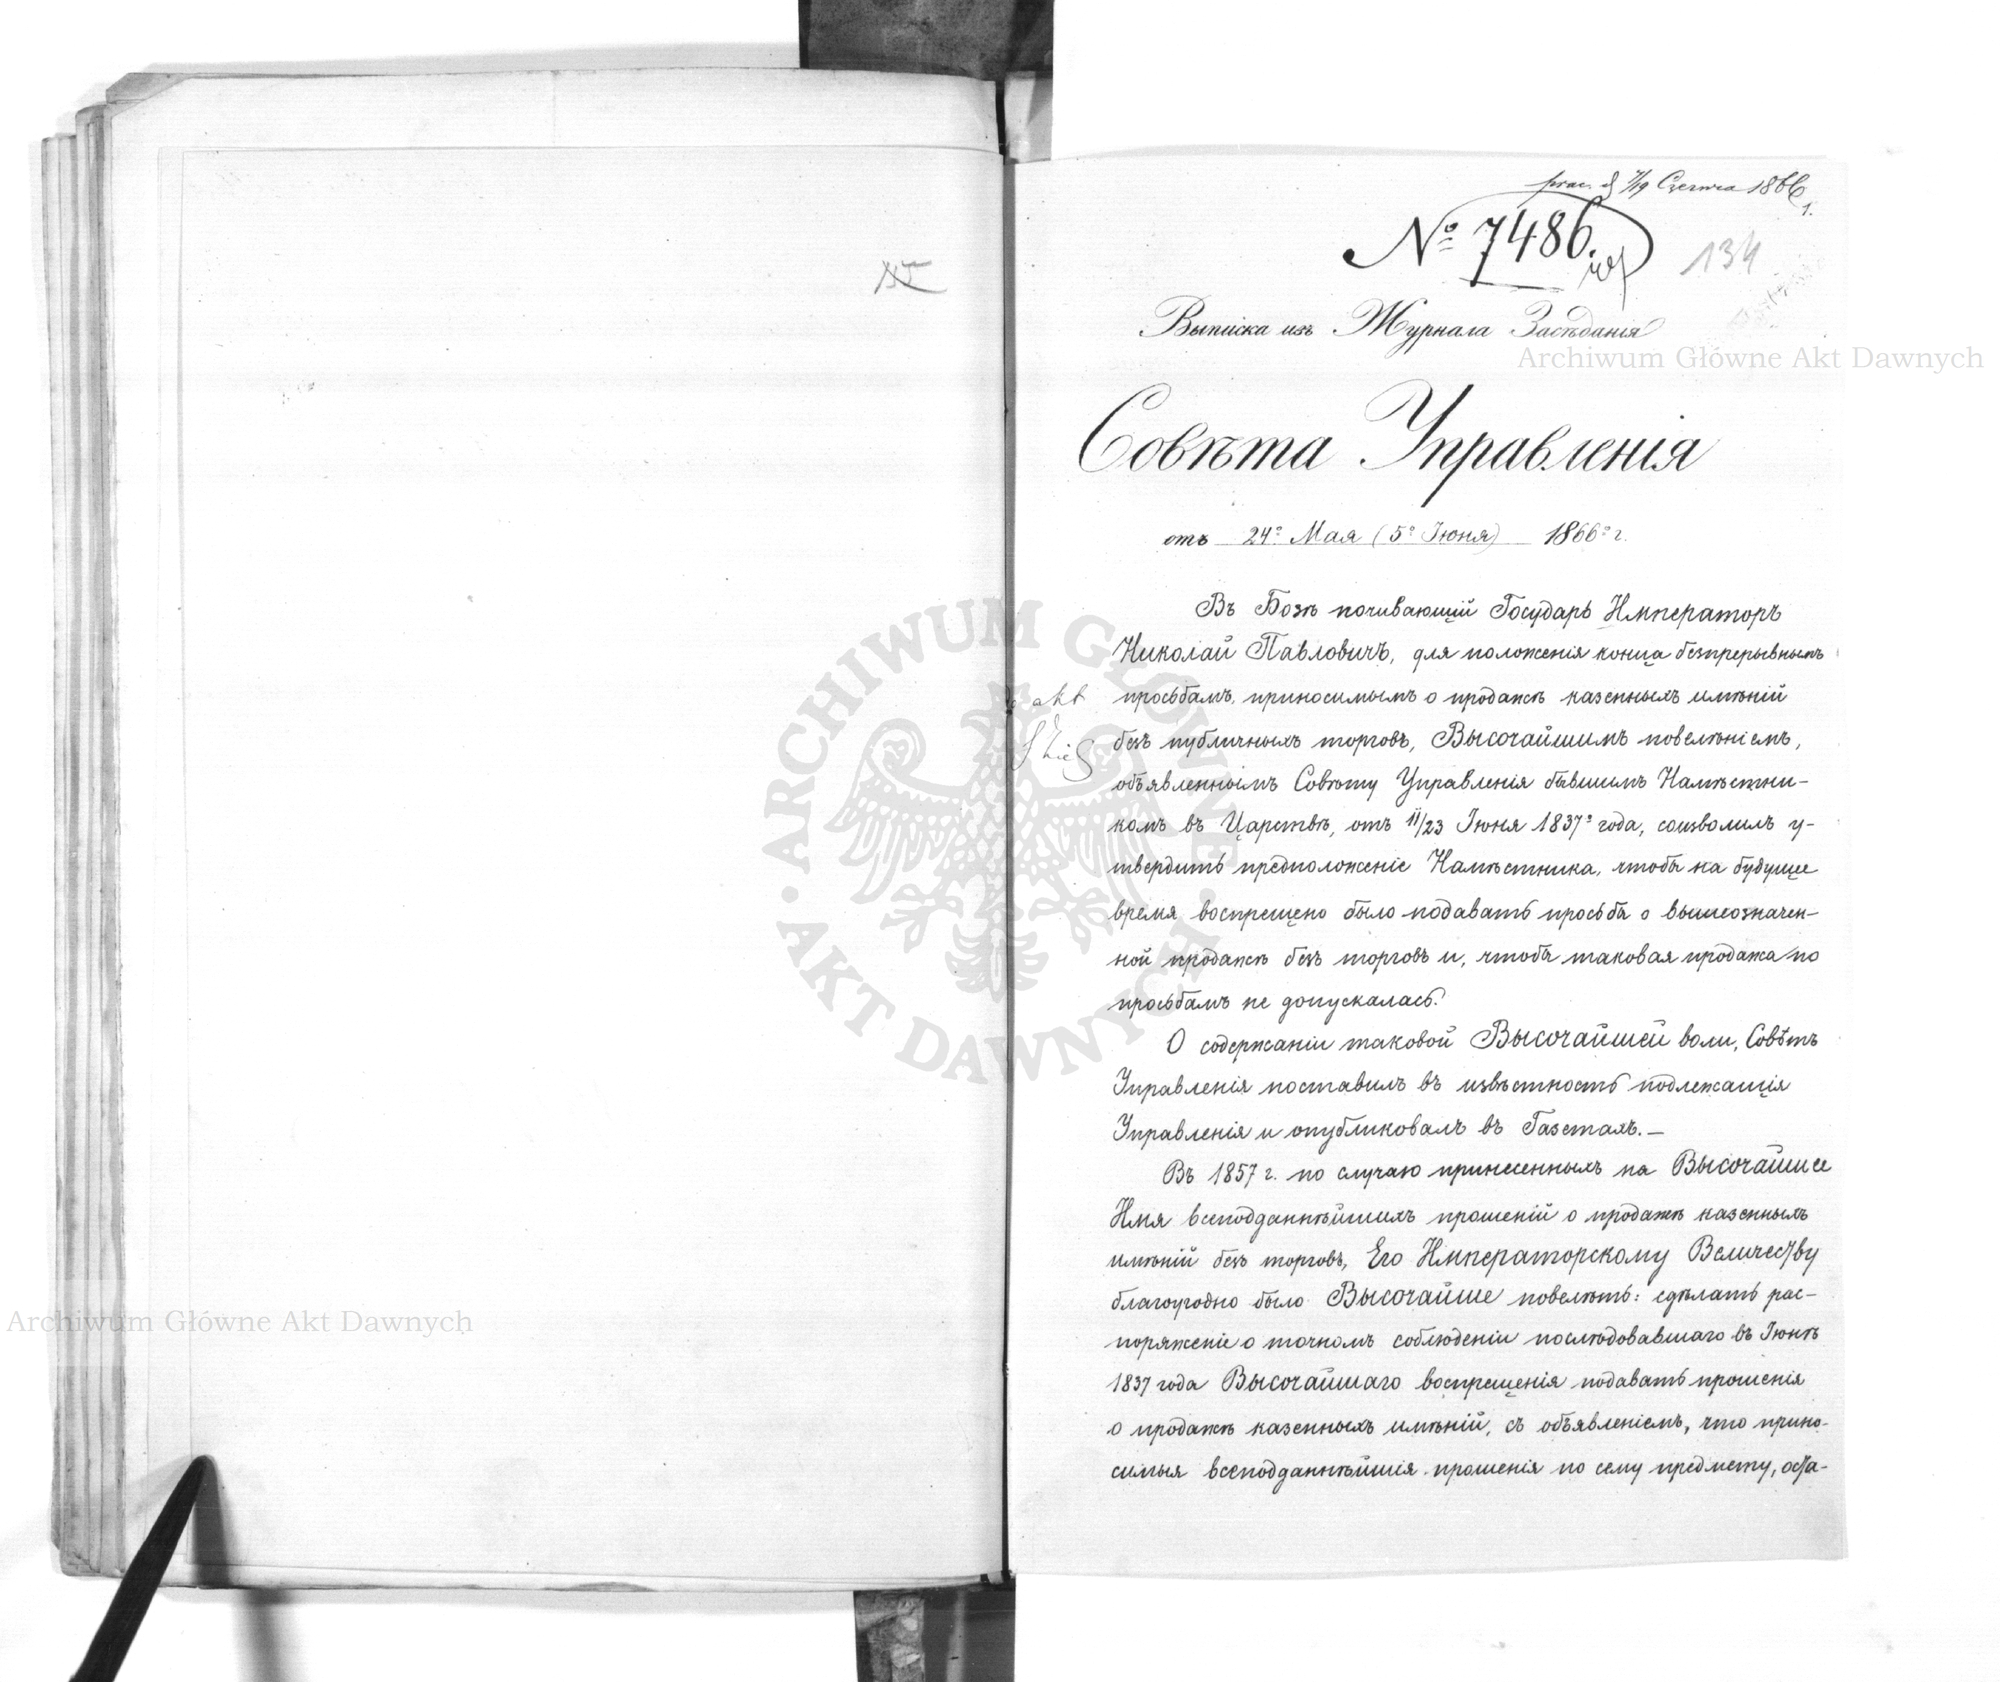 7/19 Czerwca 1866
1.
№ 7486.
134
Выписка изъ Журнала Засѣданія
Archiwum Główne Akt Dawnych
Совѣта Управленія
отъ 24º Мая (5º Іюня) 1866º г.
Въ Бозѣ почивающій Государь Императоръ
Николай Павловичъ, для положенія конца безпрерывнымъ
просьбамъ, приносимымъ о продажѣ казенныхъ имѣній
безъ публичныхъ торговъ, Высочайшимъ повелѣніемъ,
объявленнымъ Совѣту Управленія бывшимъ Намѣстни-
комъ въ Царствѣ, отъ 11/23 Іюня 1837º года, соизволилъ у-
твердить предположеніе Намѣстника, чтобы на будущее
время воспрещено было подавать просьбы о вышеозначен-
ной продажѣ безъ торговъ и, чтобы таковая продажа по
просьбамъ не допускалась.
О содержаніи таковой Высочайшей воли, Совѣтъ
Управленія поставилъ въ извѣстность подлежащія
Управленія и опубликовалъ въ Газетахъ.—
Въ 1857 г. по случаю принесенныхъ на Высочайшее
Имя всеподданнѣйшихъ прошеній о продажѣ казенныхъ
имѣній безъ торговъ, Его Императорскому Величеству
благоугодно было Высочайше повелѣть: сдѣлать рас-
поряженіе о точномъ соблюденіи послѣдовавшаго въ Іюнѣ
1837 года Высочайшаго воспрещенія подавать прошенія
о продажѣ казенныхъ имѣній, съ объявленіемъ, что прино-
симыя всеподданнѣйшія прошенія по сему предмету, оста-
akt
ARCHIWUM GŁÓWNE · AKT DAWNYCH ·
Archiwum Główne Akt Dawnych